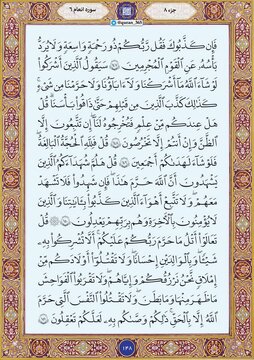 جزء ۸
@quran_365
سوره انعام ۶
فَإِن كَذَّبُوكَ فَقُل رَّبُّكُمْ ذُو رَحْمَةٍ وَاسِعَةٍ وَلَا يُرَدُّ
بَأْسُهُ عَنِ الْقَوْمِ الْمُجْرِمِينَ ۝ سَيَقُولُ الَّذِينَ أَشْرَكُوا
لَوْ شَاءَ اللَّهُ مَا أَشْرَكْنَا وَلَا آبَاؤُنَا وَلَا حَرَّمْنَا مِن شَيْءٍ
كَذَٰلِكَ كَذَّبَ الَّذِينَ مِن قَبْلِهِمْ حَتَّىٰ ذَاقُوا بَأْسَنَا قُلْ
هَلْ عِندَكُم مِّنْ عِلْمٍ فَتُخْرِجُوهُ لَنَا إِن تَتَّبِعُونَ إِلَّا
الظَّنَّ وَإِنْ أَنتُمْ إِلَّا تَخْرُصُونَ ۝ قُلْ فَلِلَّهِ الْحُجَّةُ الْبَالِغَةُ
فَلَوْ شَاءَ لَهَدَاكُمْ أَجْمَعِينَ ۝ قُلْ هَلُمَّ شُهَدَاءَكُمُ الَّذِينَ
يَشْهَدُونَ أَنَّ اللَّهَ حَرَّمَ هَٰذَا فَإِن شَهِدُوا فَلَا تَشْهَدْ
مَعَهُمْ وَلَا تَتَّبِعْ أَهْوَاءَ الَّذِينَ كَذَّبُوا بِآيَاتِنَا وَالَّذِينَ
لَا يُؤْمِنُونَ بِالْآخِرَةِ وَهُم بِرَبِّهِمْ يَعْدِلُونَ ۝ قُلْ
تَعَالَوْا أَتْلُ مَا حَرَّمَ رَبُّكُمْ عَلَيْكُمْ أَلَّا تُشْرِكُوا بِهِ
شَيْئًا وَبِالْوَالِدَيْنِ إِحْسَانًا وَلَا تَقْتُلُوا أَوْلَادَكُم مِّنْ
إِمْلَاقٍ نَّحْنُ نَرْزُقُكُمْ وَإِيَّاهُمْ وَلَا تَقْرَبُوا الْفَوَاحِشَ
مَا ظَهَرَ مِنْهَا وَمَا بَطَنَ وَلَا تَقْتُلُوا النَّفْسَ الَّتِي حَرَّمَ
اللَّهُ إِلَّا بِالْحَقِّ ذَٰلِكُمْ وَصَّاكُم بِهِ لَعَلَّكُمْ تَعْقِلُونَ ۝
۱۴۸